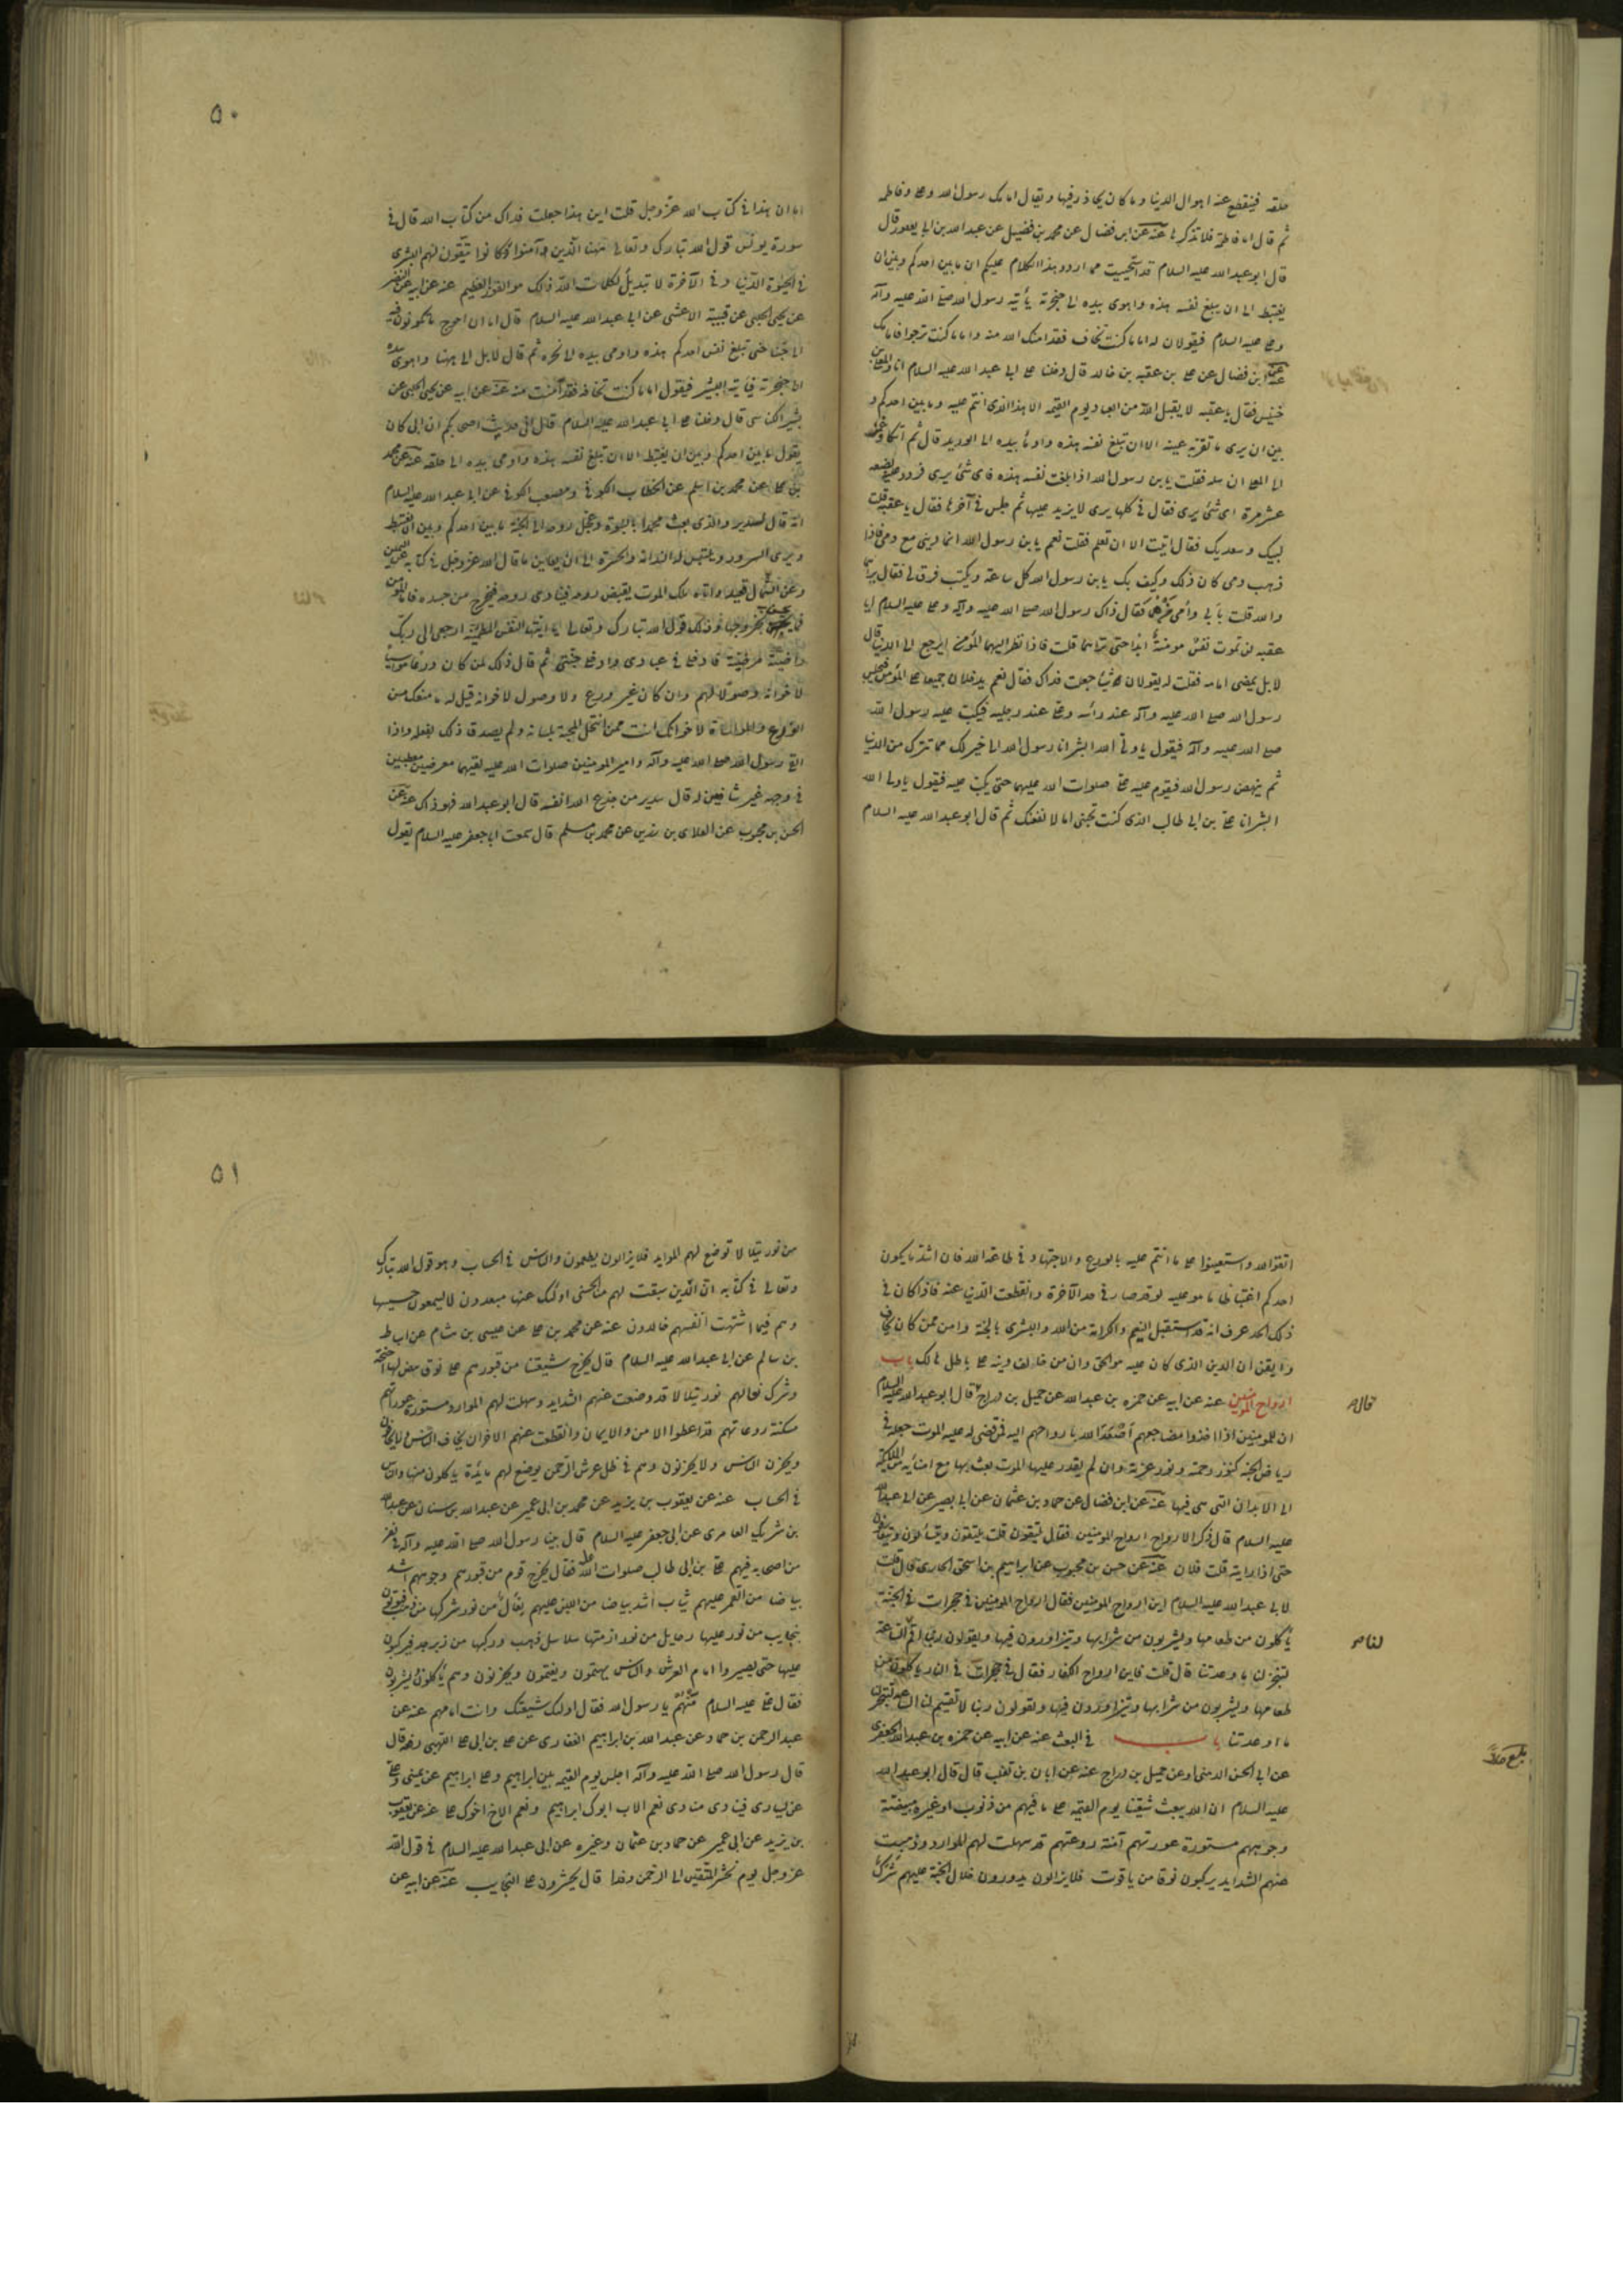 حلقه فينقطع عنه اهوال الدنيا و ما كان يحاذر فيها و يقال امامك رسول الله و على و فاطمه
ثم قال اما فاطمة فلا تذكرها عنه عن ابن فضال عن محمد بن فضيل عن عبد الله بن ابى يعفور قال
قال ابو عبد الله عليه السلام قد استحييت مما اردد هذا الكلام عليكم ان ما بين احدكم و بين ان
يغتبط الا ان يبلغ نفسه هذه و اهوى بيده الى حنجرته يأتيه رسول الله صلى الله عليه و آله
و على عليه السلام فيقولان له اما ما كنت تخاف فقد امنك الله منه و اما ما كنت ترجوا فامامك
عنه عن ابن فضال عن على بن عقبه بن خالد قال دخلنا على ابى عبد الله عليه السلام انا و المعلى بن
خنيس فقال يا عقبه لا يقبل الله من العباد يوم القيمه الا هذا الذى انتم عليه و ما بين احدكم و
بين ان يرى ما تقر به عينه الا ان تبلغ نفسه هذه و اومأ بيده الى الوريد قال ثم اتكأ و غمز
الى المعلى ان سله فقلت يا بن رسول الله اذا بلغت نفسه هذه فاى شئ يرى فردد عليه بضعه
عشر مرة اى شئ يرى فقال فى كلها يرى لا يزيد عليها ثم جلس فى آخرها فقال يا عقبه قلت
لبيك و سعديك فقال ابيت الا ان تعلم فقلت نعم يا بن رسول الله انما دينى مع دمى فاذا
ذهب دمى كان ذلك و كيف بك يا بن رسول الله كل ساعة و بكيت فرق لى فقال يراهما
والله قلت بأبى و أمى من هما فقال ذاك رسول الله صلى الله عليه و آله و على عليه السلام يا
عقبه لن تموت نفس مومنة أبدا حتى تراهما قلت فاذا نظر اليهما المؤمن ايرجع الى الدنيا قال
لا بل يمضى امامه فقلت له يقولان له شيئا جعلت فداك فقال نعم يدخلان جميعا على المؤمن فيجلس
رسول الله صلى الله عليه و آله عند رأسه و على عند رجليه فيكب عليه رسول الله
صلى الله عليه و آله فيقول يا ولى الله ابشر انا رسول الله انا خير لك مما تترك من الدنيا
ثم ينهض رسول الله فيقوم عليه على صلوات الله عليهما حتى يكب عليه فيقول يا ولى الله
ابشر انا على بن ابى طالب الذى كنت تحبنى اما لانفعنك ثم قال ابو عبد الله عليه السلام
۵۰
اما ان هذا فى كتاب الله عز و جل قلت اين هذا جعلت فداك من كتاب الله قال فى
سورة يونس قول الله تبارك و تعالى ههنا الذين آمنوا و كانوا يتقون لهم البشرى
فى الحيوة الدنيا و فى الآخرة لا تبديل لكلمات الله ذلك هو الفوز العظيم عنه عن ابيه عن النضر
عن يحيى الحلبى عن قتيبه الاعشى عن ابى عبد الله عليه السلام قال اما ان احوج ما تكونون فيه
الى حبنا حتى تبلغ نفس احدكم هذه و اومى بيده الى نحره ثم قال لا بل الى ههنا و اهوى بيده
الى حنجرته فيأتيه البشير فيقول اما ما كنت تخافه فقد أمنت منه عنه عن ابيه عن يحيى الحلبى عن
بشير الكناسى قال دخلنا على ابى عبد الله عليه السلام فقال حديث اصحابكم ان ابى كان
يقول ما بين احدكم و بين ان يغتبط الا ان تبلغ نفسه هذه و اومى بيده الى حلقه عنه عن محمد
بن على عن محمد بن اسلم عن الخطاب الكوفى و مصعب الكوفى عن ابى عبد الله عليه السلام
انه قال لسدير و الذى بعث محمدا بالنبوة و عجل روحه الى الجنة ما بين احدكم و بين ان يغتبط
و يرى السرور و يتبين له الندامة و الحسرة الا ان يعاين ما قال الله عز و جل فى كتابه عن اليمين
و عن الشمال قعيد و اتاه ملك الموت يقبض روحه فينادى روحه فيخرج من جسده فاما المومن
فما يحس بخروجها و ذلك قول الله تبارك و تعالى يا ايتها النفس المطمئنة ارجعى الى ربك
راضية مرضية فادخلى فى عبادى و ادخلى جنتى ثم قال ذلك لمن كان ورعا مواسيا
لاخوانه وصولا لهم و ان كان غير ورع و لا وصول لاخوانه قيل له ما منعك من
الورع و المواساة لاخوانك انت ممن انتحل المحبة بلسانه و لم يصدق ذلك بفعله و اذا
لقى رسول الله صلى الله عليه و آله و امير المومنين صلوات الله عليه لقيهما معرضين مقطبين
فى وجهه غير شافعين له قال سدير من جدع الله انفه قال ابو عبد الله فهو ذاك عنه عن
الحسن بن محبوب عن العلاى بن رزين عن محمد بن مسلم قال سمعت ابا جعفر عليه السلام يقول
اتقوا الله و استعينوا على ما انتم عليه بالورع و الاجتهاد فى طاعة الله فان اشد ما يكون
احدكم اغتباطا ما هو عليه لو قد صار فى حد الآخرة و انقطعت الدنيا عنه فاذا كان فى
ذلك الحد عرف انه قد استقبل النعيم و الكرامة من الله و البشرى بالجنة و امن ممن كان يخاف
و ايقن ان الدين الذى كان عليه هو الحق و ان من خالف دينه على باطل هالك باب
ارواح المومنين عنه عن ابيه عن حمزه بن عبد الله عن جميل بن دراج قال قال ابو عبد الله عليه السلام
ان المومنين اذا اخذوا مضاجعهم أصعد الله بارواحهم اليه فمن قضى له عليه الموت جعله فى
رياض الجنه كنوز رحمته و نور عزته و ان لم يقدر عليها الموت بعث بها مع امنائه من الملئكة
الى الابدان التى هى فيها عنه عن ابن فضال عن حماد بن عثمان عن ابى بصير عن ابى عبد الله
عليه السلام قال ذكر الارواح ارواح المومنين فقال يلتقون قلت يلتقون و يتسألون و يتعارفون
حتى اذا رايته قلت فلان عنه عن حسن بن محبوب عن ابراهيم بن اسحق الجازى قال قلت
لابى عبد الله عليه السلام اين ارواح المومنين فقال ارواح المومنين فى حجرات فى الجنة
يأكلون من طعامها و يشربون من شرابها و يتزاورون فيها و يقولون ربنا اقم لنا الساعة
لتنجز لنا ما وعدتنا قال قلت فاين ارواح الكفار فقال فى حجرات فى النار ياكلون من
طعامها و يشربون من شرابها و يتزاورون فيها و يقولون ربنا لا تقيم لنا الساعة لتنجز
ما اوعدتنا باب فى البعث عنه عن ابيه عن حمزه بن عبد الله الجعفرى
عن ابى الحسن الدهنى و عن جميل بن دراج عنه عن ابان بن تغلب قال قال ابو عبد الله
عليه السلام ان الله يبعث شيعتنا يوم القيمه على ما فيهم من ذنوب او غيره مبيضة
وجوههم مستورة عورتهم آمنة روعتهم قد سهلت لهم الموارد و ذهبت
عنهم الشدايد يركبون نوقا من ياقوت فلا يزالون يدورون خلال الجنة عليهم شرك
قال
لنا
بلغ
۵۱
من نور يتلالا توضع لهم الموايد فلا يزالون يطعمون و الناس فى الحساب و هو قول الله تبارك
و تعالى فى كتابه ان الذين سبقت لهم منا الحسنى اولئك عنها مبعدون لا يسمعون حسيسها
و هم فيما اشتهت أنفسهم خالدون عنه عن محمد بن على عن عيسى بن هشام عن اسباط
بن سالم عن ابى عبد الله عليه السلام قال يخرج شيعتنا من قبورهم على نوق بيض لها اجنحة
و شرك نعالهم نور يتلالا قد وضعت عنهم الشدايد و سهلت لهم الموارد مستورة عوراتهم
مسكنة روعاتهم قد اعطوا الامن و الايمان و انقطعت عنهم الاحزان يخاف الناس و لا يخافون
و يحزن الناس و لا يحزنون و هم فى ظل عرش الرحمن يوضع لهم مائدة ياكلون منها و الناس
فى الحساب عنه عن يعقوب بن يزيد عن محمد بن ابى عمير عن عبد الله بن سنان عن عبد الله
بن شريك العامرى عن ابى جعفر عليه السلام قال بينا رسول الله صلى الله عليه و آله فى نفر
من اصحابه فيهم على بن ابى طالب صلوات الله عليه فقال يخرج قوم من قبورهم وجوههم اشد
بياضا من القمر عليهم ثياب أشد بياضا من اللبن عليهم نعال من نور شركها من ذهب فيؤتون
بنجايب من نور عليها رحايل من نور ازمتها سلاسل ذهب و ركبها من زبرجد فيركبون
عليها حتى يصيروا امام العرش و الناس يهتمون و يغتمون و يحزنون و هم يأكلون و يشربون
فقال على عليه السلام منهم يا رسول الله فقال اولئك شيعتك و انت امامهم عنه عن
عبد الرحمن بن حماد عن عبد الله بن ابراهيم الغفارى عن على بن ابى على اللهبى رفعه قال
قال رسول الله صلى الله عليه و آله اجلس يوم القيمه بين ابراهيم و على ابراهيم عن يمينى و على
عن يسارى فينادى مناد نعم الاب ابوك ابراهيم و نعم الاخ اخوك على عنه عن يعقوب
بن يزيد عن ابى عمير عن حماد بن عثمان و غيره عن ابى عبد الله عليه السلام فى قول الله
عز و جل يوم نحشر المتقين الى الرحمن وفدا قال يحشرون على النجايب عنه عن ابيه عن